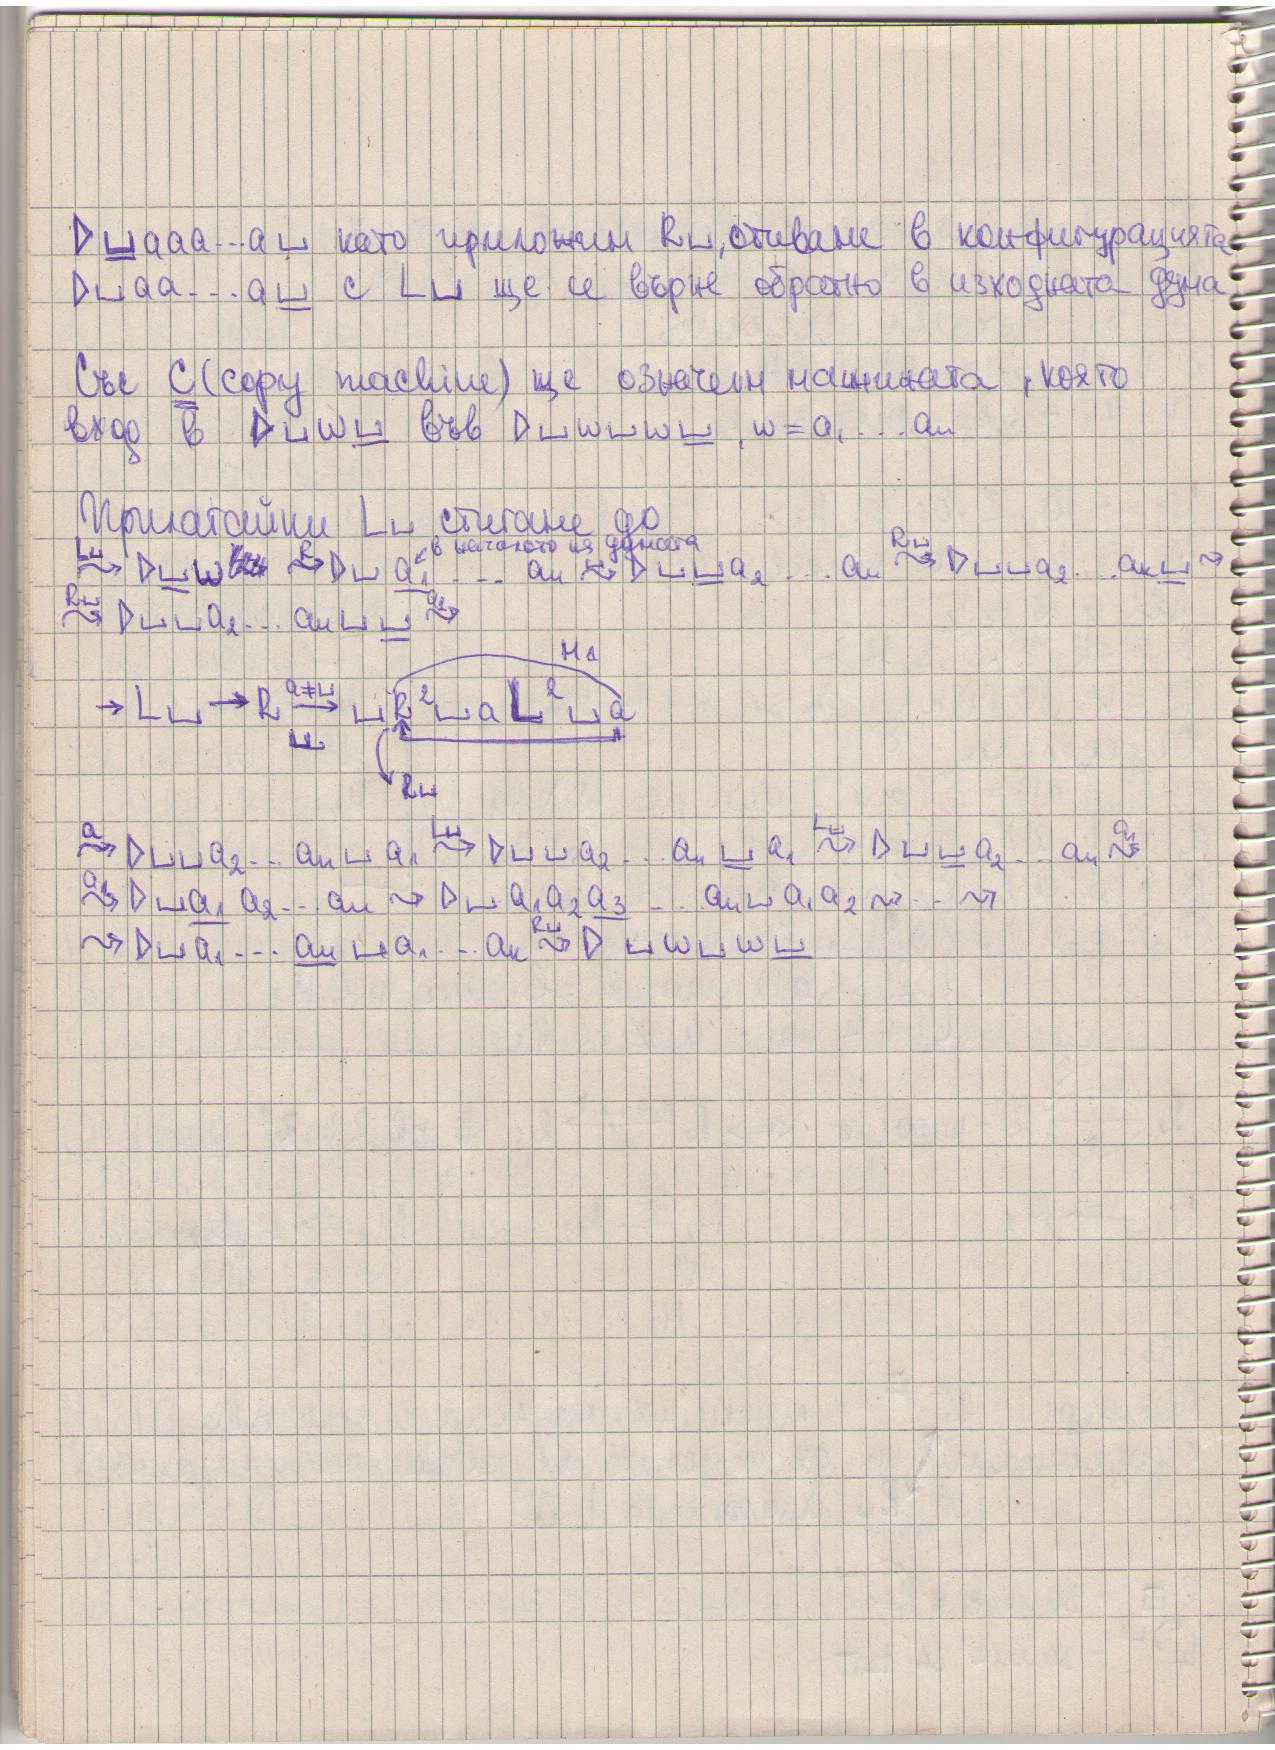 ▷⊔aaa...a⊔ като приложим R⊔, отиваме в конфигурацията
▷⊔aa...a⊔ с L⊔ ще се върне обратно в изходната дума
Със C (copy machine) ще означим машината, която
вход в ▷⊔w⊔ във ▷⊔w⊔w⊔, w = a₁...aₙ
Прилагайки L⊔ стигаме до
в началото на думата
L⊔⤳ ▷⊔w R⤳ ▷⊔a₁...aₙ ⤳ ▷⊔⊔a₂...aₙ R⊔⤳ ▷⊔⊔a₂...aₙ⊔ ⤳
R⊔⤳ ▷⊔⊔a₂...aₙ⊔⊔ a₁⤳
Ma
→ L⊔ → R a≠⊔→ ⊔R²⊔aL²⊔a
⊔
R⊔
a⤳ ▷⊔⊔a₂...aₙ⊔a₁ L⊔⤳ ▷⊔⊔a₂...aₙ⊔a₁ L⊔⤳ ▷⊔⊔a₂...aₙ a₁⤳
a₁⤳ ▷⊔a₁a₂...aₙ ⤳ ▷⊔a₁a₂a₃...aₙ⊔a₁a₂ ⤳ ... ⤳
⤳ ▷⊔a₁...aₙ⊔a₁...aₙ R⊔⤳ ▷⊔w⊔w⊔